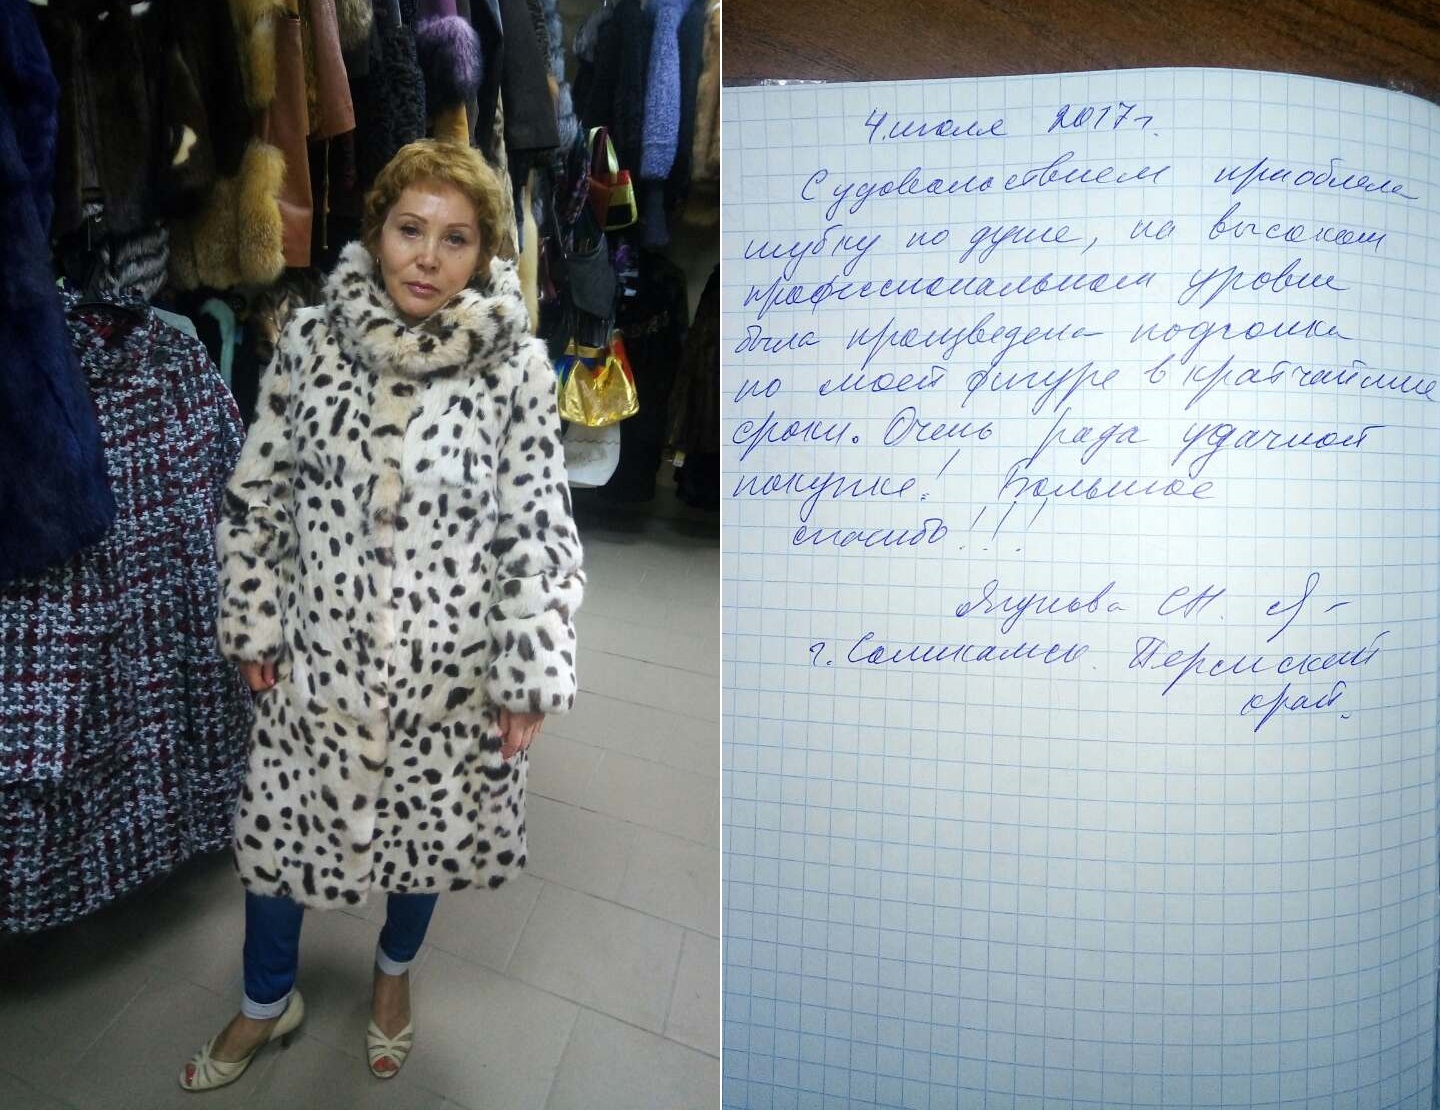 4 июля 2017 г.
С удовольствием приобрела
шубку по душе, на высоком
профессиональном уровне
была произведена подгонка
по моей фигуре в кратчайшие
сроки. Очень рада удачной
покупке! Большое
спасибо!!!
Ягунова С.Н.
г. Соликамск. Пермский
край.